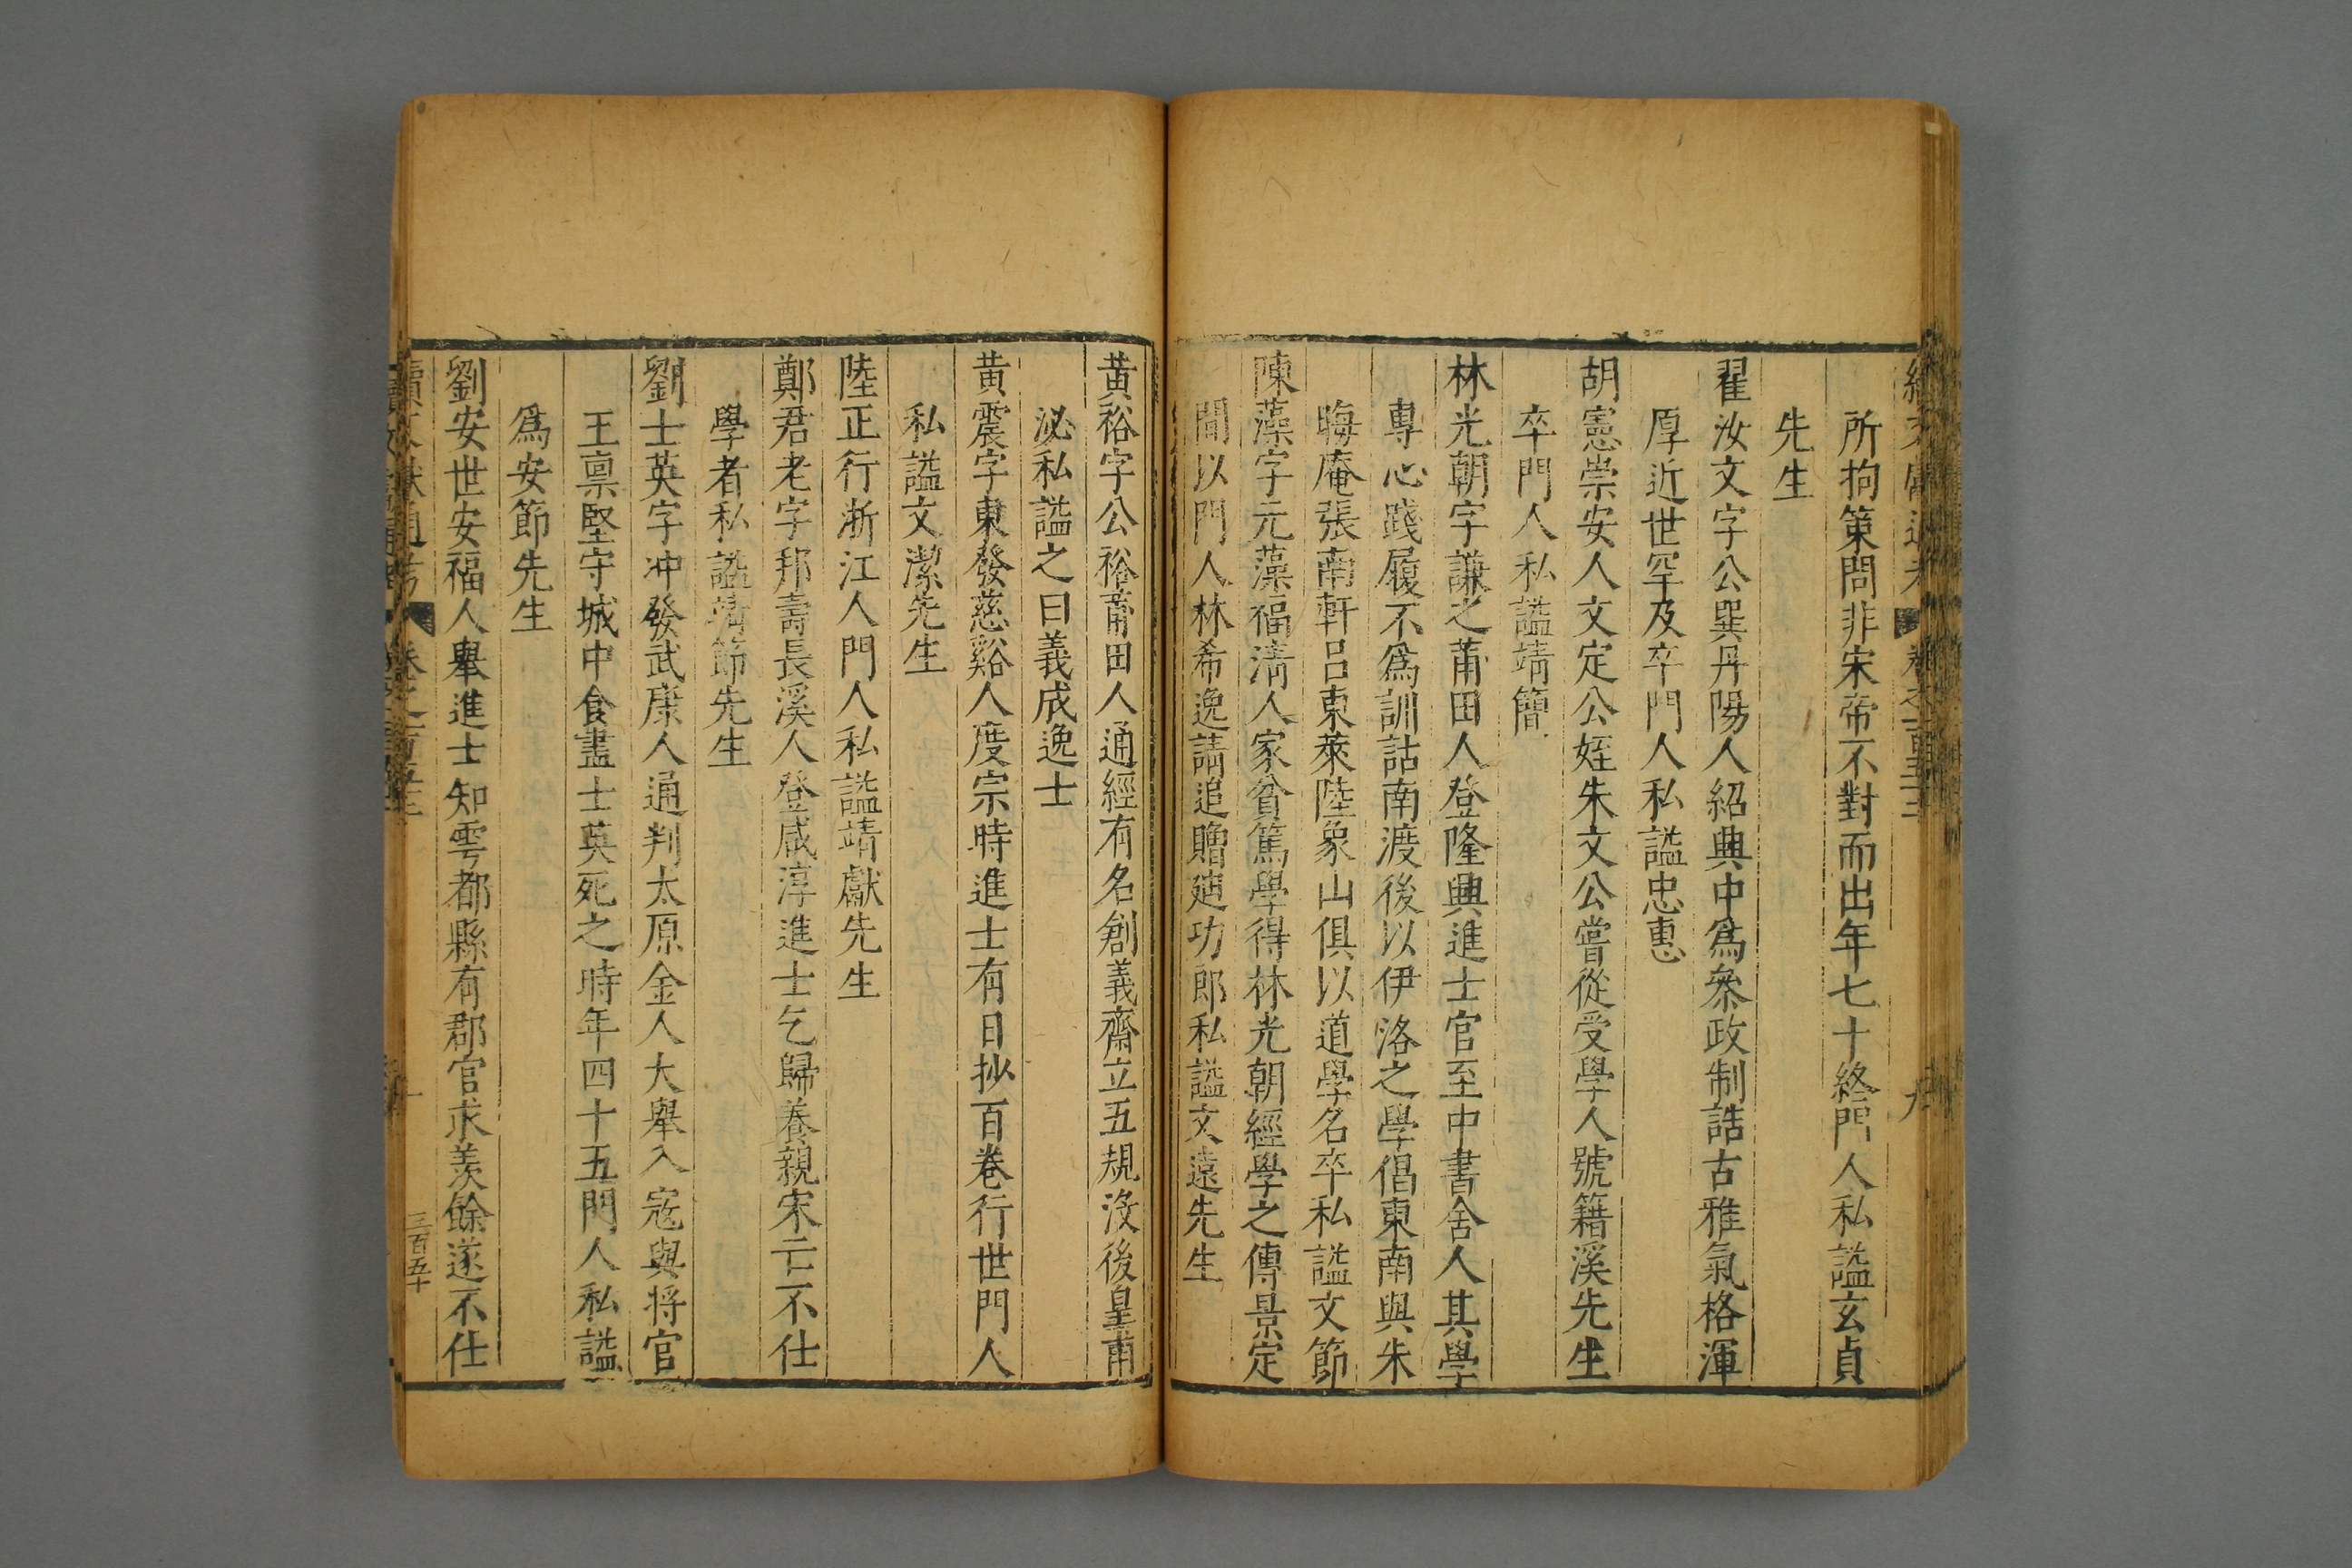 所拘策問非宋帝不對而出年七十終門人私謚玄貞
先生
翟汝文字公巽丹陽人紹興中爲叅政制誥古雅氣格渾
厚近世罕及卒門人私謚忠惠
胡憲崇安人文定公姪朱文公嘗從受學人號籍溪先生
卒門人私謚靖簡
林光朝字謙之莆田人登隆興進士官至中書舍人其學
專心踐履不爲訓詁南渡後以伊洛之學倡東南與朱
晦庵張南軒呂東萊陸象山俱以道學名卒私謚文節
陳藻字元藻福清人家貧篤學得林光朝經學之傳景定
間以門人林希逸請追贈廸功郎私謚文遠先生
黃裕字公裕莆田人通經有名創義齋立五規沒後皇甫
泌私謚之曰義成逸士
黃震字東發慈谿人度宗時進士有日抄百卷行世門人
私謚文潔先生
陸正行浙江人門人私謚靖獻先生
鄭君老字邦壽長溪人登咸淳進士乞歸養親宋亡不仕
學者私謚靖節先生
劉士英字冲發武康人通判太原金人大舉入寇與将官
王禀堅守城中食盡士英死之時年四十五門人私謚
爲安節先生
劉安世安福人舉進士知雩都縣有郡官求羡餘遂不仕
續文獻通考 卷之一百
三百五十